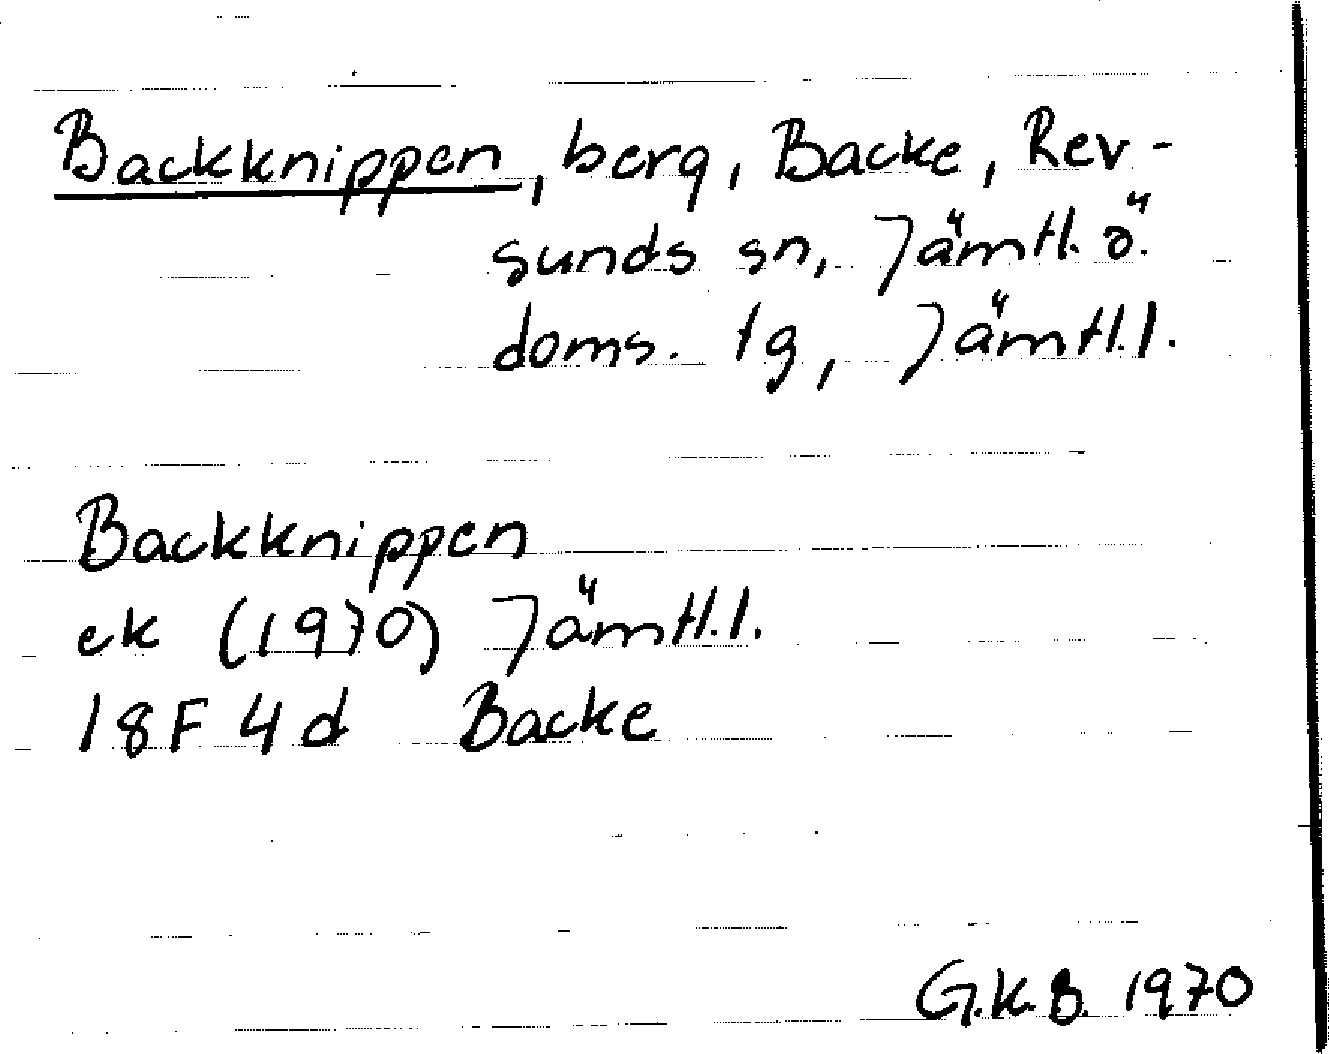 Backknippen, berg, Backe, Rev-
sunds sn, Jämtl. ö.
doms. tg, Jämtl.l.
Backknippen
ek (1970) Jämtl.l.
18F 4d Backe
G.K.B. 1970